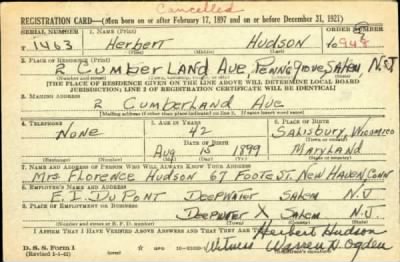 Cancelled
REGISTRATION CARD—(Men born on or after February 17, 1897 and on or before December 31, 1921)
SERIAL NUMBER 1. NAME (Print) ORDER NUMBER
1463 Herbert Hudson
(First) (Middle) (Last)
2. PLACE OF RESIDENCE (Print)
2 Cumberland Ave, Pennsgrove, Salem, N.J.
(Number and street) (Town, township, village, or city) (County) (State)
[THE PLACE OF RESIDENCE GIVEN ON THE LINE ABOVE WILL DETERMINE LOCAL BOARD
JURISDICTION; LINE 2 OF REGISTRATION CERTIFICATE WILL BE IDENTICAL]
3. MAILING ADDRESS
2 Cumberland Ave
4. TELEPHONE 5. AGE IN YEARS 6. PLACE OF BIRTH
None 42 Salisbury, Wicomico
DATE OF BIRTH
Aug 15 1899 Maryland
7. NAME AND ADDRESS OF PERSON WHO WILL ALWAYS KNOW YOUR ADDRESS
Mrs Florence Hudson 67 Foote St. New Haven, Conn
8. EMPLOYER'S NAME AND ADDRESS
E. I. DuPont Deepwater Salem N.J.
9. PLACE OF EMPLOYMENT OR BUSINESS
Deepwater X Salem N.J.
(Number and street or R. F. D. number) (Town) (County) (State)
I AFFIRM THAT I HAVE VERIFIED ABOVE ANSWERS AND THAT THEY ARE TRUE.
Herbert Hudson
D. S. S. Form 1
(Revised 1-1-42) GPO Witness Warren D. Ogden